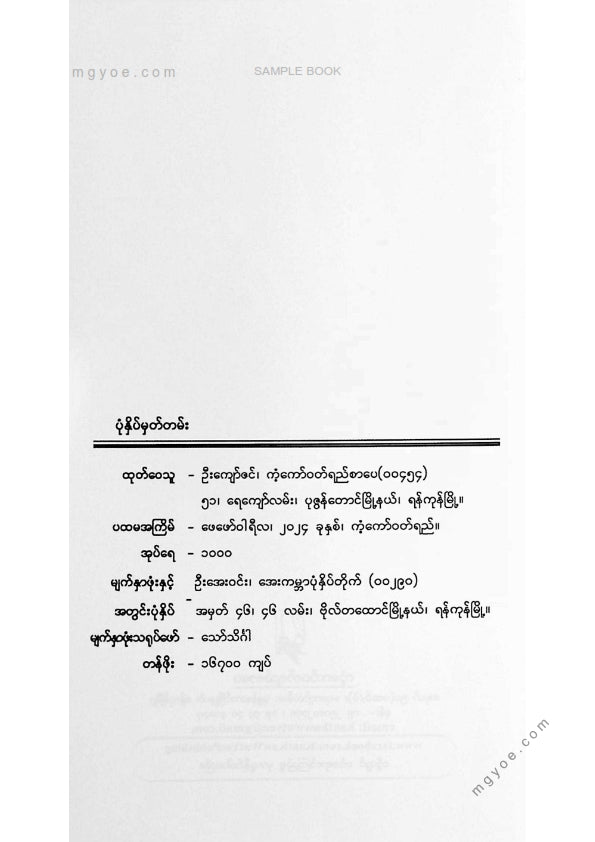 mgyoe.com
SAMPLE BOOK
ပုံနှိပ်မှတ်တမ်း
ထုတ်ဝေသူ – ဦးကျော်ဇင်၊ ကံ့ကော်ဝတ်ရည်စာပေ(၀၀၄၅၄)
၅၁၊ ရေကျော်လမ်း၊ ပုဇွန်တောင်မြို့နယ်၊ ရန်ကုန်မြို့။
ပထမအကြိမ် – ဖေဖော်ဝါရီလ၊ ၂၀၂၄ ခုနှစ်၊ ကံ့ကော်ဝတ်ရည်။
အုပ်ရေ – ၁၀၀၀
မျက်နှာဖုံးနှင့် ဦးအေးဝင်း၊ အေးကမ္ဘာပုံနှိပ်တိုက် (၀၀၂၉၀)
အတွင်းပုံနှိပ် – အမှတ် ၄၆၊ ၄၆ လမ်း၊ ဗိုလ်တထောင်မြို့နယ်၊ ရန်ကုန်မြို့။
မျက်နှာဖုံးသရုပ်ဖော် – သော်သိင်္ဂါ
တန်ဖိုး – ၁၆၇၀၀ ကျပ်
mgyoe.com